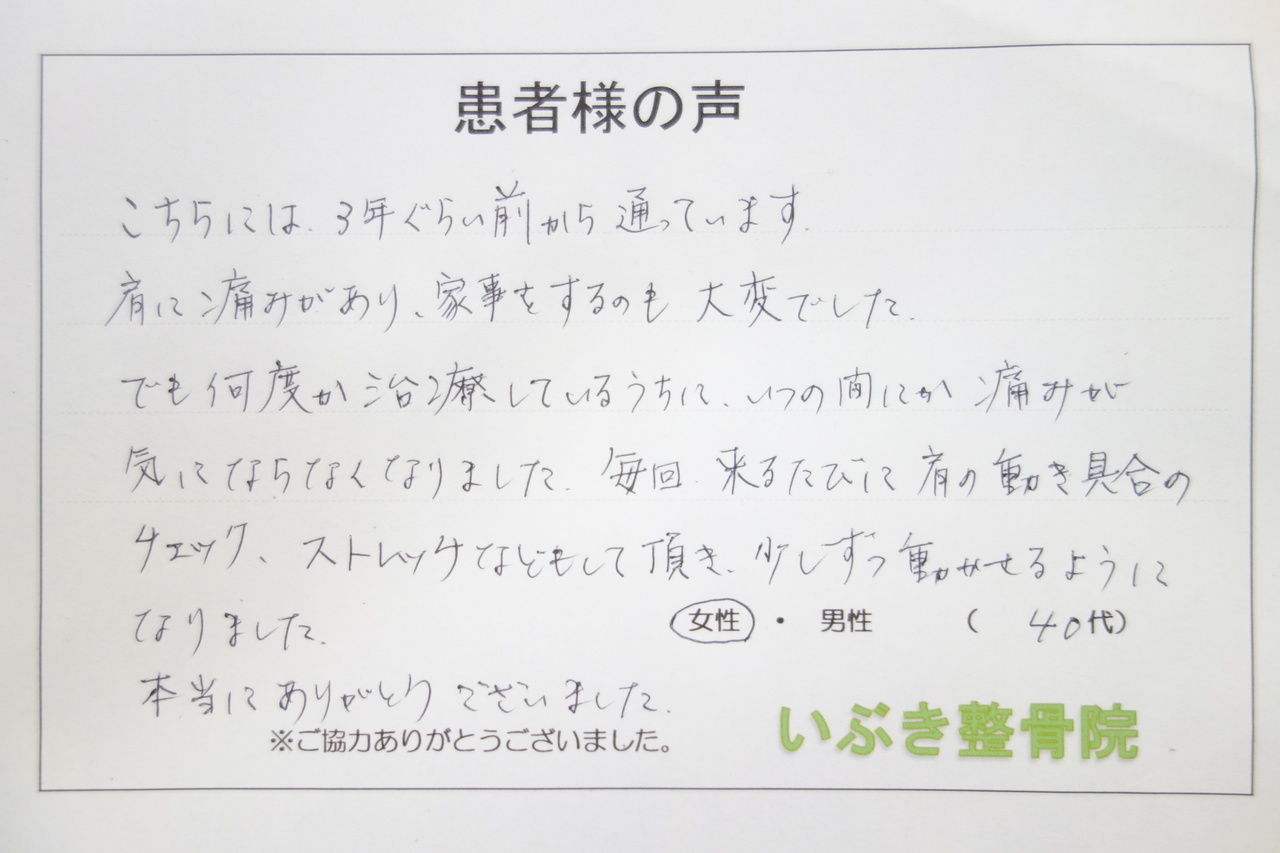 患者様の声
こちらには、3年ぐらい前から通っています。
肩に痛みがあり、家事をするのも大変でした。
でも何度か治療しているうちに、いつの間にか痛みが
気にならなくなりました。毎回、来るたびに肩の動き具合の
チェック、ストレッチなどもして頂き、少しずつ動かせるように
なりました。
女性 ・ 男性 ( 40代)
本当にありがとうございました。
※ご協力ありがとうございました。
いぶき整骨院